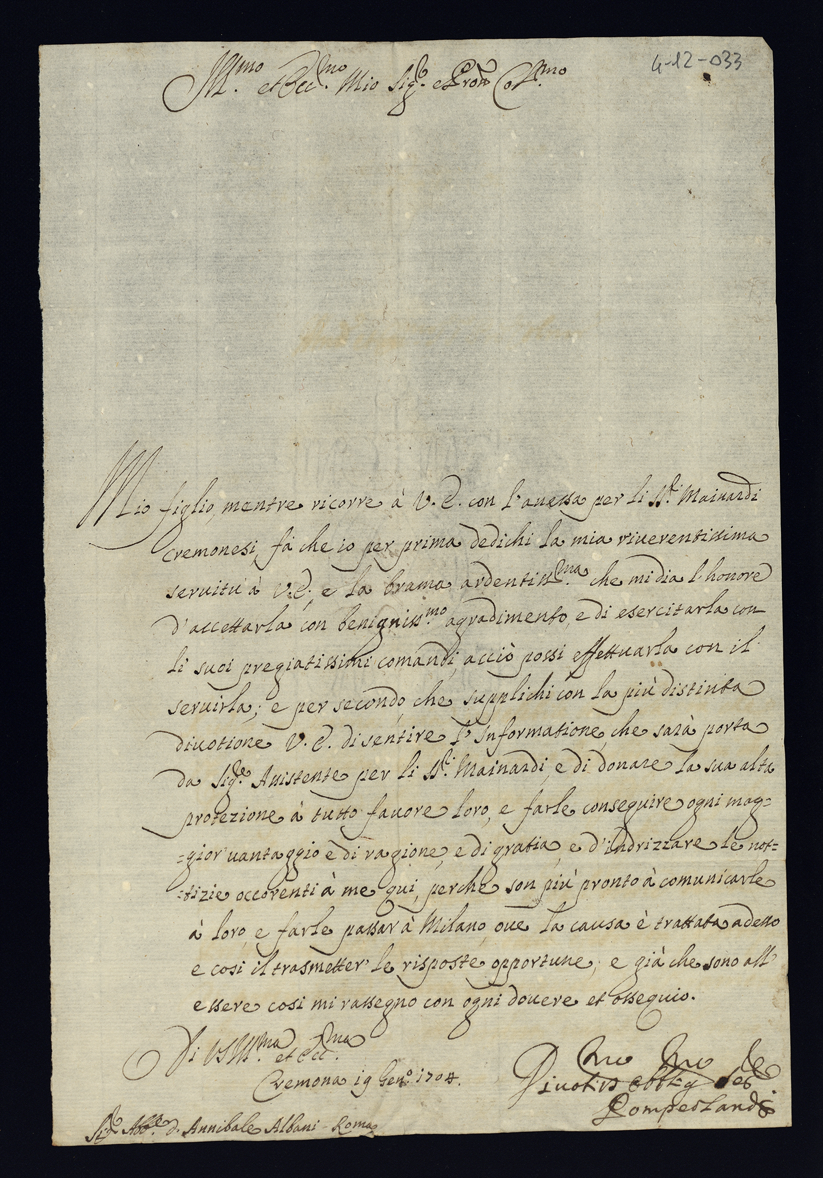 4-12-033
Ill.mo et Ecc.mo Mio Sig.re e Pron Col.mo
Mio figlio mentre ricorre à V. E. con l'anessa per li SS.ri Mainardi
Cremonesi, fà che io per prima dedichi la mia riverentissima
servitù à V. E; e la brama ardentiss.ma che mi dia l'honore
d'accettarla con beniguiss.mo agradimento, e di esercitarla con
li suoi pregiatissimi comandi, acciò possi effettuarla con il
servirla; e per secondo, che supplichi con la più distinta
divotione V. E. di sentire l'Informatione, che sarà porta
da Sig.re Assistente per li SS.ri Mainardi e di donare la sua alta
protezione à tutto favore loro, e farle conseguire ogni mag=
=gior vantaggio e di ragione, e di gratia, e d'indrizzare le not=
=tizie occorenti à me qui, perche son più pronto à comunicarle
à loro, e farle passar à Milano, ove la causa è trattata adesso
e così il trasmetter le risposte opportune; e già che sono all'
essere così mi rassegno con ogni dovere et ossequio.
Di VS Ill.ma et Ecc.ma
Cremona 19 Gen.o 1704.
Divotis.mo Oblig.mo Ser.e
Pompeo Landi
Sig.r Abb.e D. Annibale Albani - Roma